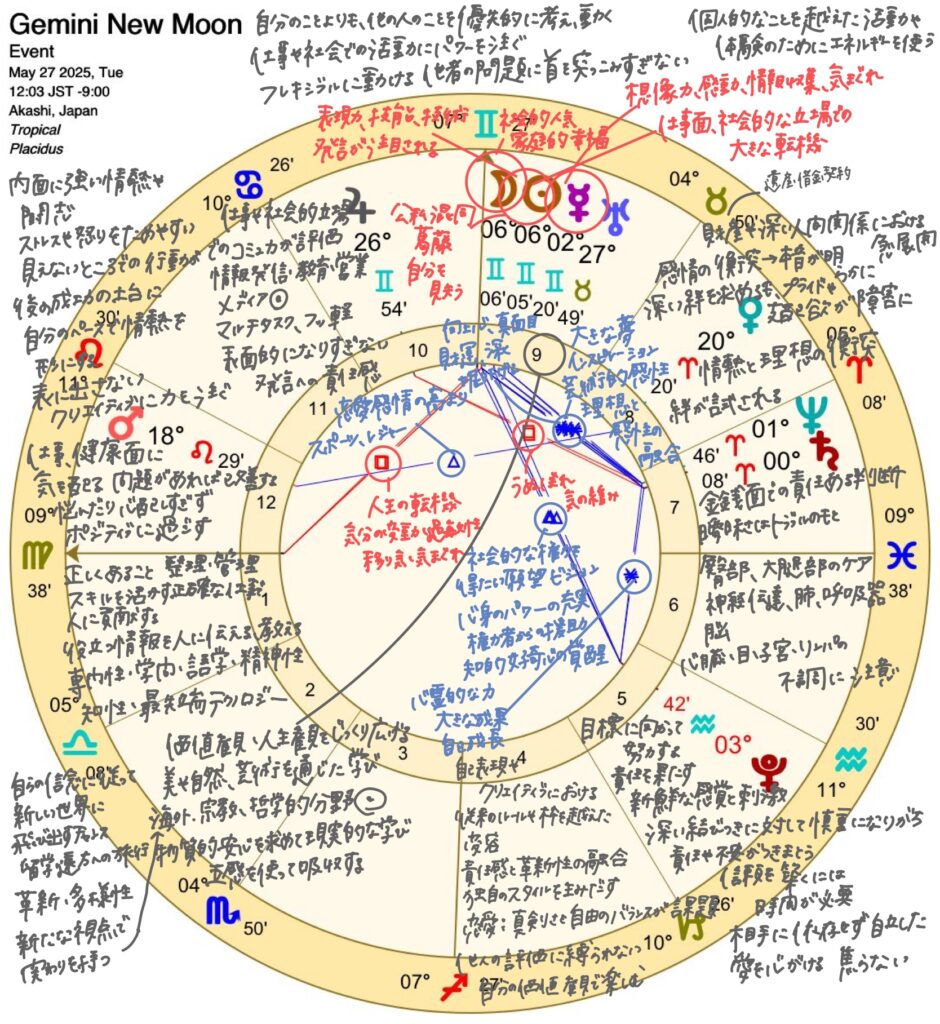 Gemini New Moon
Event
May 27 2025, Tue
12:03 JST -9:00
Akashi, Japan
Tropical
Placidus
自分のことよりも、他の人のことを優先的に考え、動く
仕事や社会での活動にパワーを注ぐ
フレキシブルに動ける 他者の問題に首を突っこみすぎない
個人的なことを超えた活動や
体験のためにエネルギーを使う
想像力、感動、情報収集、気まぐれ
仕事面、社会的な立場での
大きな転機
表現力、才能、技術
発言が注目される
社会的人気
家庭的幸福
公私混同
葛藤
自分を
見失う
遺産・借金契約
財産や深い人間関係における
急展開
感情の衝突→本音が明
らかに
深い絆を求めるも、プライドや
独占欲が障害に
情熱と理想の衝突
絆が試される
内面に強い情熱や
闘志
ストレスや怒りをためやすい
見えないところでの行動が
後の成功の土台に
自分のペースで情熱を
形にする
表に出せない
クリエイティブに力を注ぐ
仕事や社会的立場
でのコミュ力が評価
情報発信・教育・営業
メディア
マルチタスク、フッ軽
表面的になりすぎない
発言への責任感
向上心、真面目
財運、深
大きな夢
インスピレーション
芸術的感性
理想と
感性の
融合
恋愛感情の高まり
スポーツ、レジャー
人生の転機
気分の変動が過剰
移り気、気まぐれ
うぬぼれ
気の緩み
社会的な権力を
得たい願望 ビジョン
心身のパワーの充実
権力者からの援助
知的好奇心の覚醒
心霊的な力
大きな成果
自己成長
仕事、健康面に
気を配る 問題があれば改善する
忙しかったり
ポジティブに過ごす
正しくあること 整理・管理
スキルを活かす 正確な仕事
人に貢献する
役立つ情報を人に伝える、教える
専門性・学問・語学・精神性
知性・最先端テクノロジー
金銭面での責任ある
曖昧さはトラブルのもと
臀部、大腿部のケア
神経伝達、肺、呼吸器
脳
心臓・目・子宮・リンパの
不調に注意
価値観・人生観をじっくり広げる
美や自然、芸術を通じた学び
海外、宗教、哲学的分野
物質的安心を求めて現実的な学び
五感を使って吸収する
自らの信念に従って
新しい世界に
飛び出すチャンス
留学、遠方への旅行
革新・多様性
新たな視点で
関わりを持つ
自己表現や
クリエイティブにおける
従来のルールや枠を超えた
変容
責任感と革新性の融合
独自のスタイルを生みだす
恋愛・真剣さと自由のバランスが課題
他人の評価に縛られない
自分の価値観で楽しむ
目標に向かって
努力する
責任を果たす
新鮮な感覚と刺激
深い結びつきに対して慎重になりがち
責任や不安がつきまとう
信頼を築くには
時間が必要
相手に依存せず自立した
愛を心がける 焦らない
07° 27'
04° 50'
05° 08'
09° 38'
11° 30'
10° 26'
07° 27'
04° 50'
05° 08'
09° 38'
11° 30'
10° 26'
06° 06'
06° 05'
02° 20'
27° 49'
20° 20'
01° 46'
00° 08'
03° 42'
18° 29'
26° 54'
1
2
3
4
5
6
7
8
9
10
11
12